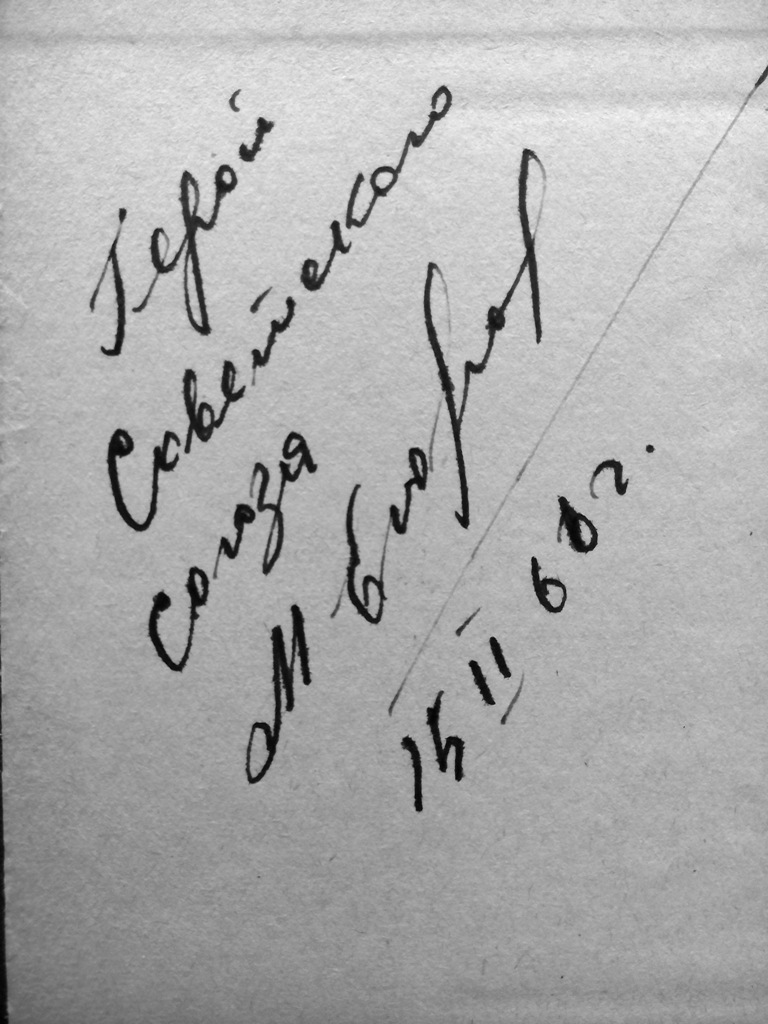 Герой
Советского
Союза
М Егоров
15 II 68 г.